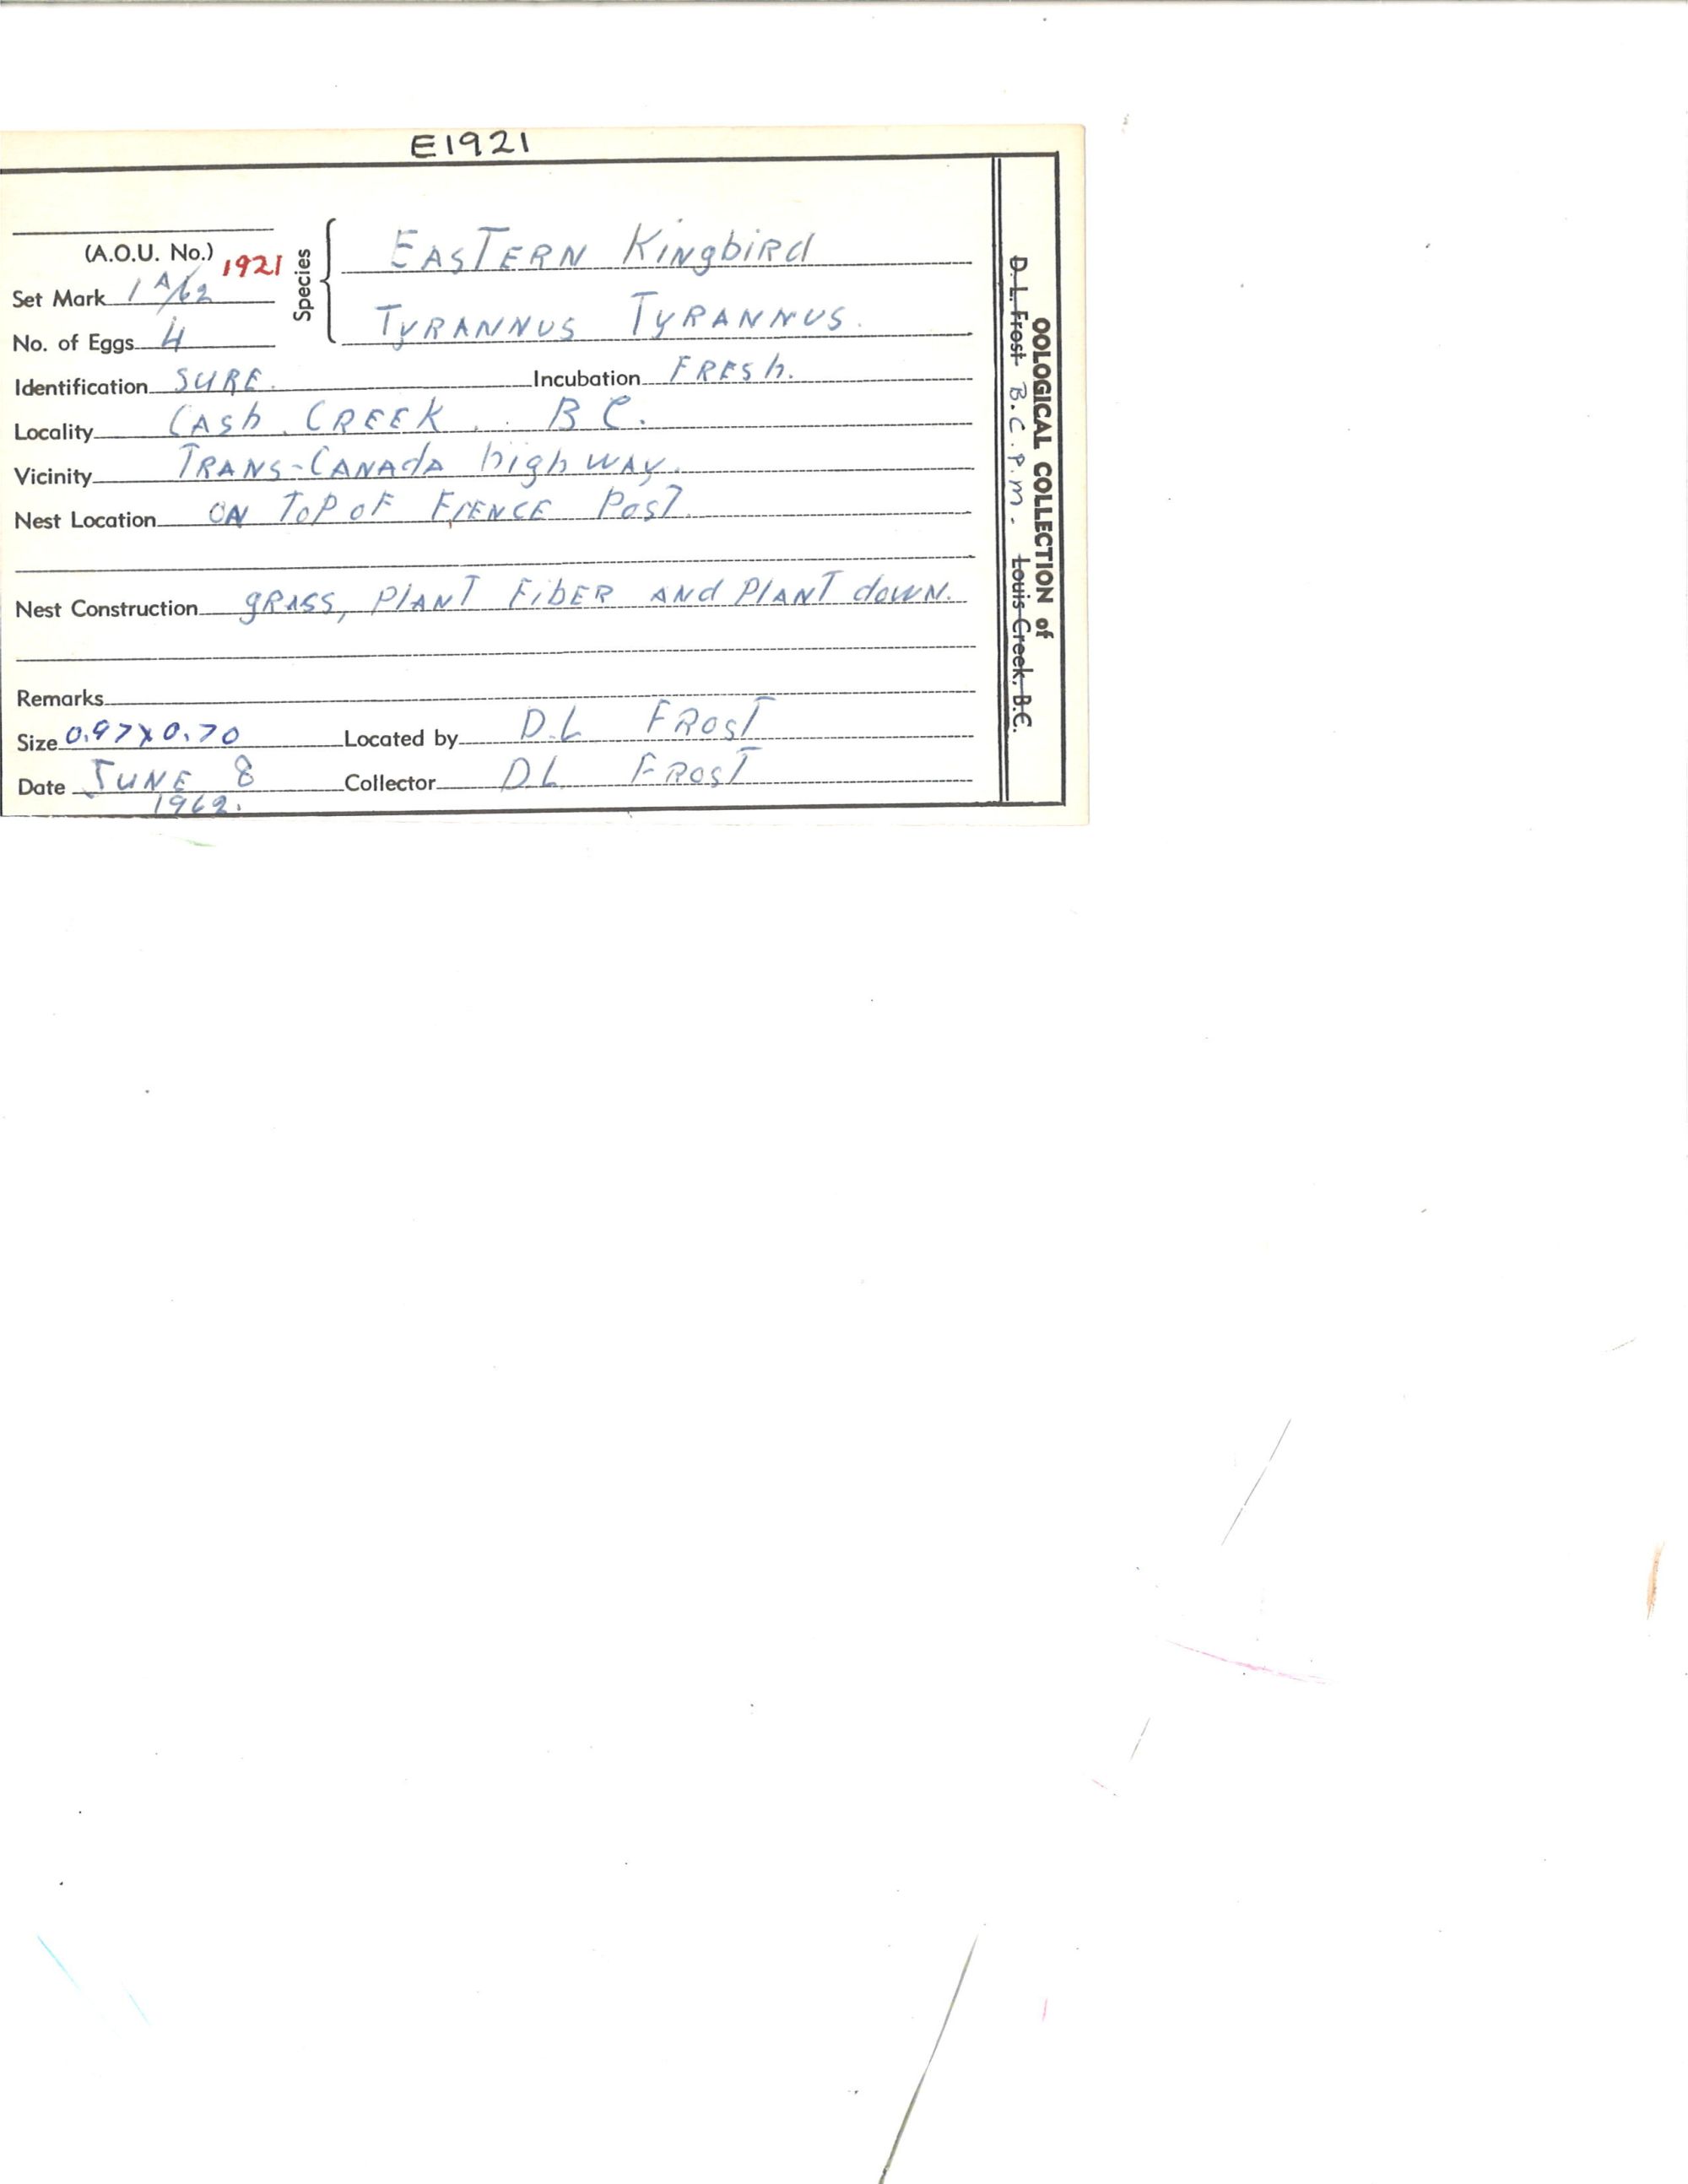 E1921
(A.O.U. No.) 1921
Set Mark 1 A/62
No. of Eggs 4
Species
EASTERN KingbiRd
TYRANNUS TYRANNUS.
Identification SURE. Incubation FRESh.
Locality CASh CREEK, B C.
Vicinity TRANS-CANAdA high WAY.
Nest Location ON TOP OF FENCE POST.
Nest Construction gRASS, PLANT FibER ANd PLANT dOWN.
Remarks
Size 0.97 X 0.70 Located by D.L FROST
Date JUNE 8 Collector D.L. FROST
1962.
OOLOGICAL COLLECTION of
D. L. Frost B.C.P.M. Louis Creek, B.C.